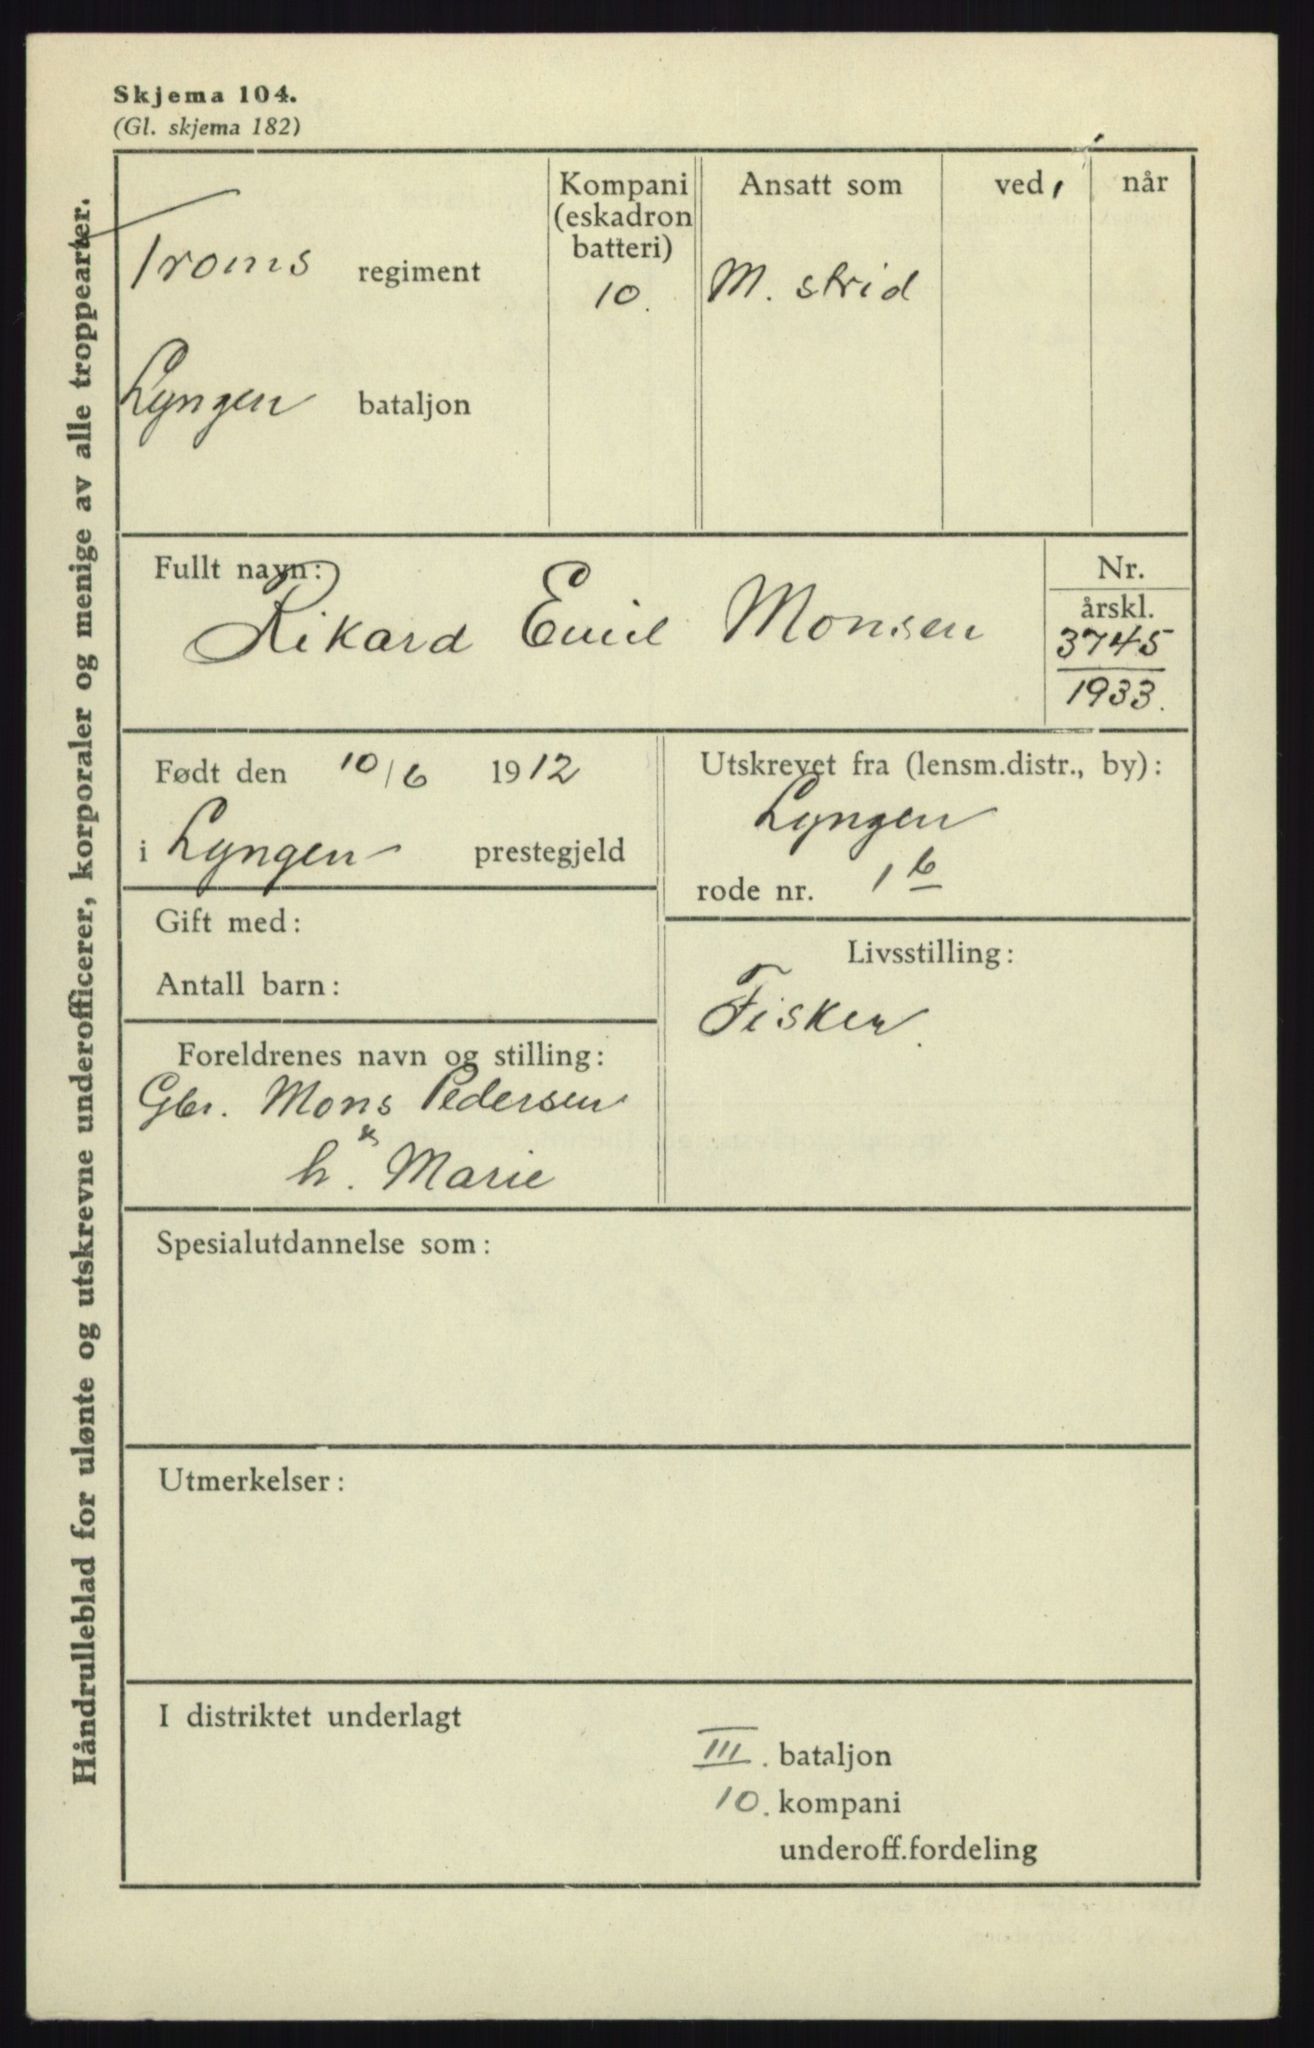 Skjema 104.
(Gl. skjema 182)
Håndrulleblad for ulønte og utskrevne underofficerer, korporaler og menige av alle troppearter.
Troms regiment
Lyngen bataljon
Kompani
(eskadron
batteri)
10.
Ansatt som
M. strid
ved
når
Fullt navn:
Rikard Emil Monsen
Nr.
årskl.
3745
1933.
Født den 10/6 1912
i Lyngen prestegjeld
Utskrevet fra (lensm.distr., by):
Lyngen
rode nr. 1 b
Gift med:
Antall barn:
Livsstilling:
Fisker.
Foreldrenes navn og stilling:
Gbr. Mons Pedersen
&
h. Marie
Spesialutdannelse som:
Utmerkelser:
I distriktet underlagt
III. bataljon
10. kompani
underoff.fordeling